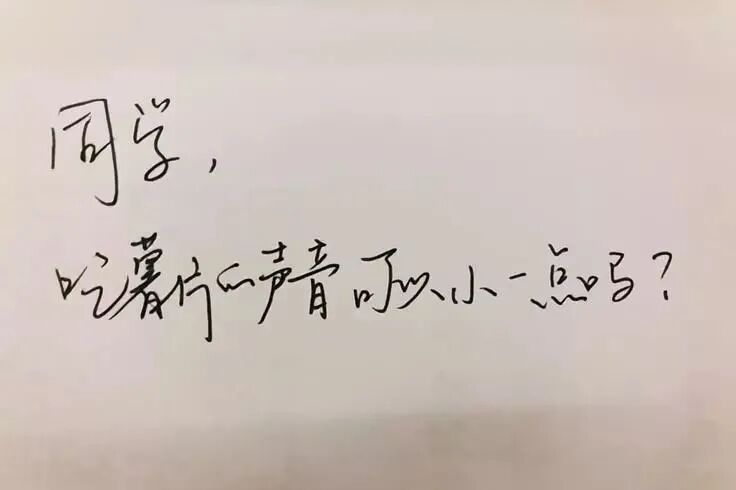 同学，
吃薯片的声音可以小一点吗？